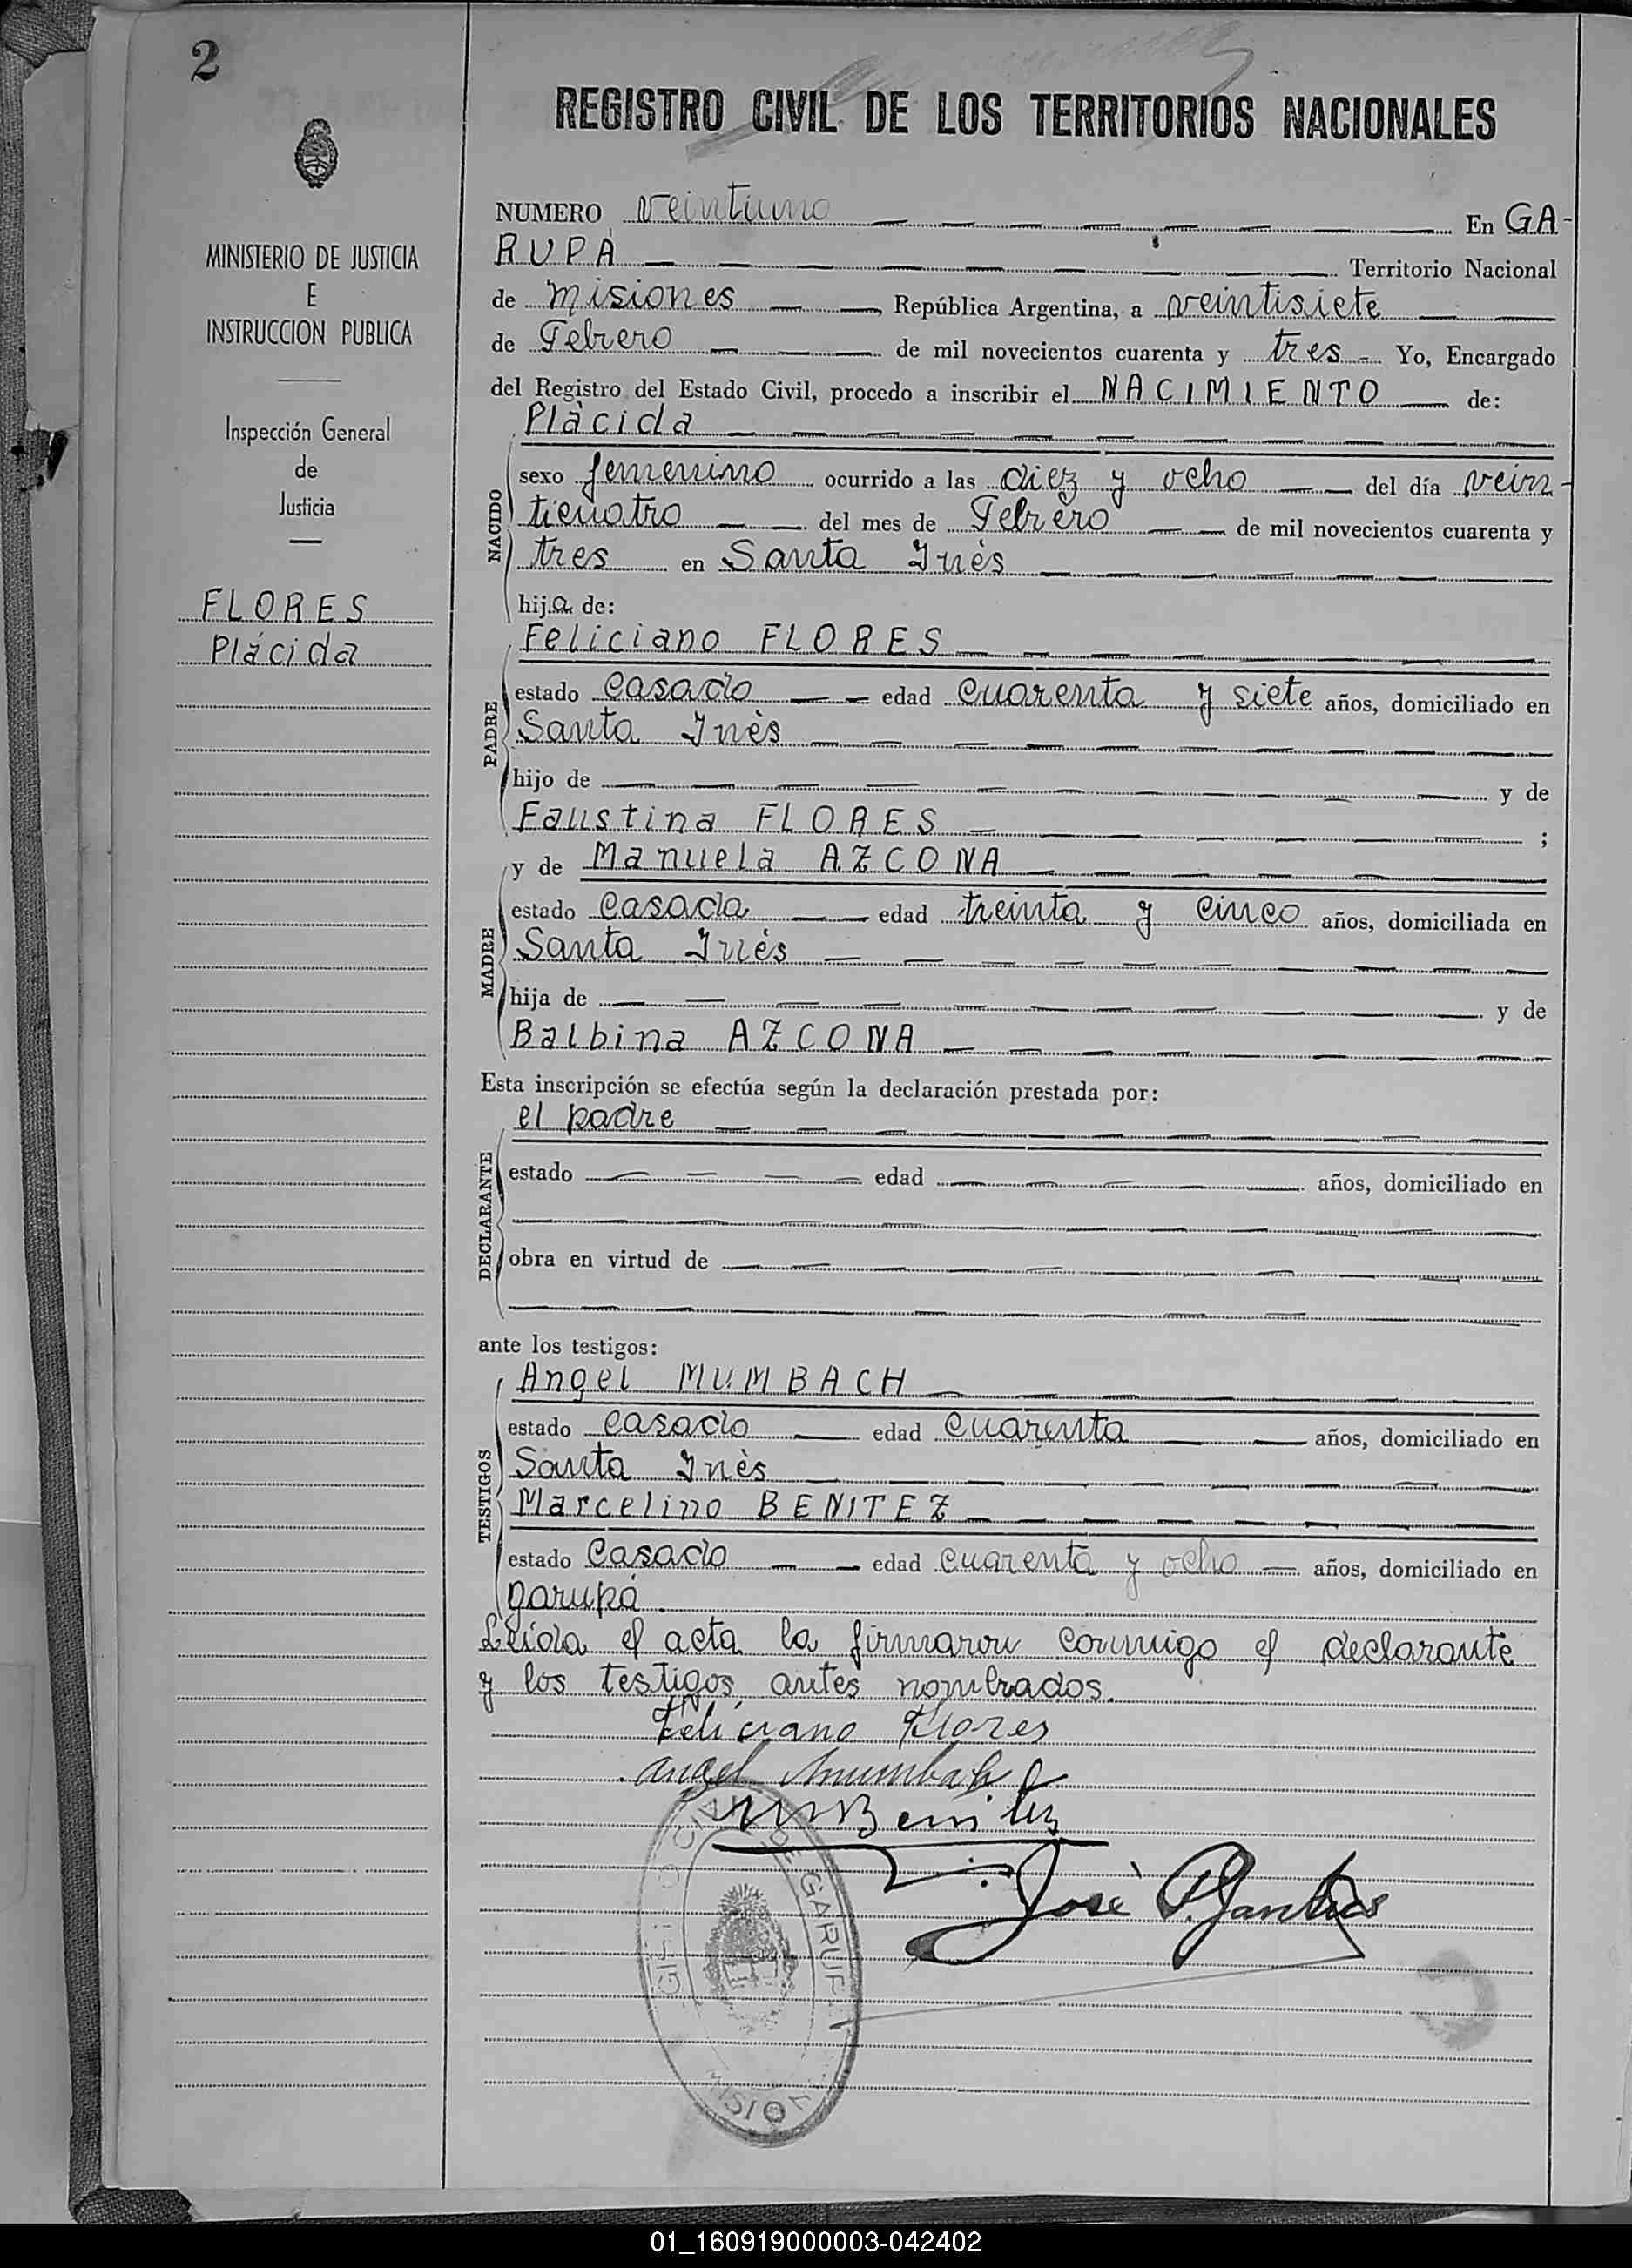 2
MINISTERIO DE JUSTICIA
E
INSTRUCCION PUBLICA
Inspección General
de
Justicia
FLORES
Plácida
REGISTRO CIVIL DE LOS TERRITORIOS NACIONALES
NUMERO veintiuno En GA-
RUPÀ Territorio Nacional
de Misiones, República Argentina, a veintisiete
de Febrero de mil novecientos cuarenta y tres Yo, Encargado
del Registro del Estado Civil, procedo a inscribir el NACIMIENTO de:
Plàcida
NACIDO
sexo femenino ocurrido a las diez y ocho del día vein-
ticuatro del mes de Febrero de mil novecientos cuarenta y
tres en Santa Inès
hija de:
Feliciano FLORES
PADRE
estado casado edad cuarenta y siete años, domiciliado en
Santa Inès
hijo de y de
Faustina FLORES ;
y de Manuela AZCONA
MADRE
estado casada edad treinta y cinco años, domiciliada en
Santa Inès
hija de y de
Balbina AZCONA
Esta inscripción se efectúa según la declaración prestada por:
el padre
DECLARANTE
estado edad años, domiciliado en
obra en virtud de
ante los testigos:
Angel MUMBACH
TESTIGOS
estado casado edad cuarenta años, domiciliado en
Santa Inès
Marcelino BENITEZ
estado casado edad cuarenta y ocho años, domiciliado en
garupá.
Leida el acta la firmaron conmigo el declarante
y los testigos antes nombrados.
Feliciano Flores
Angel Mumbach
M Benitez
José P.
DE GARUPA
MISION
01_160919000003-042402